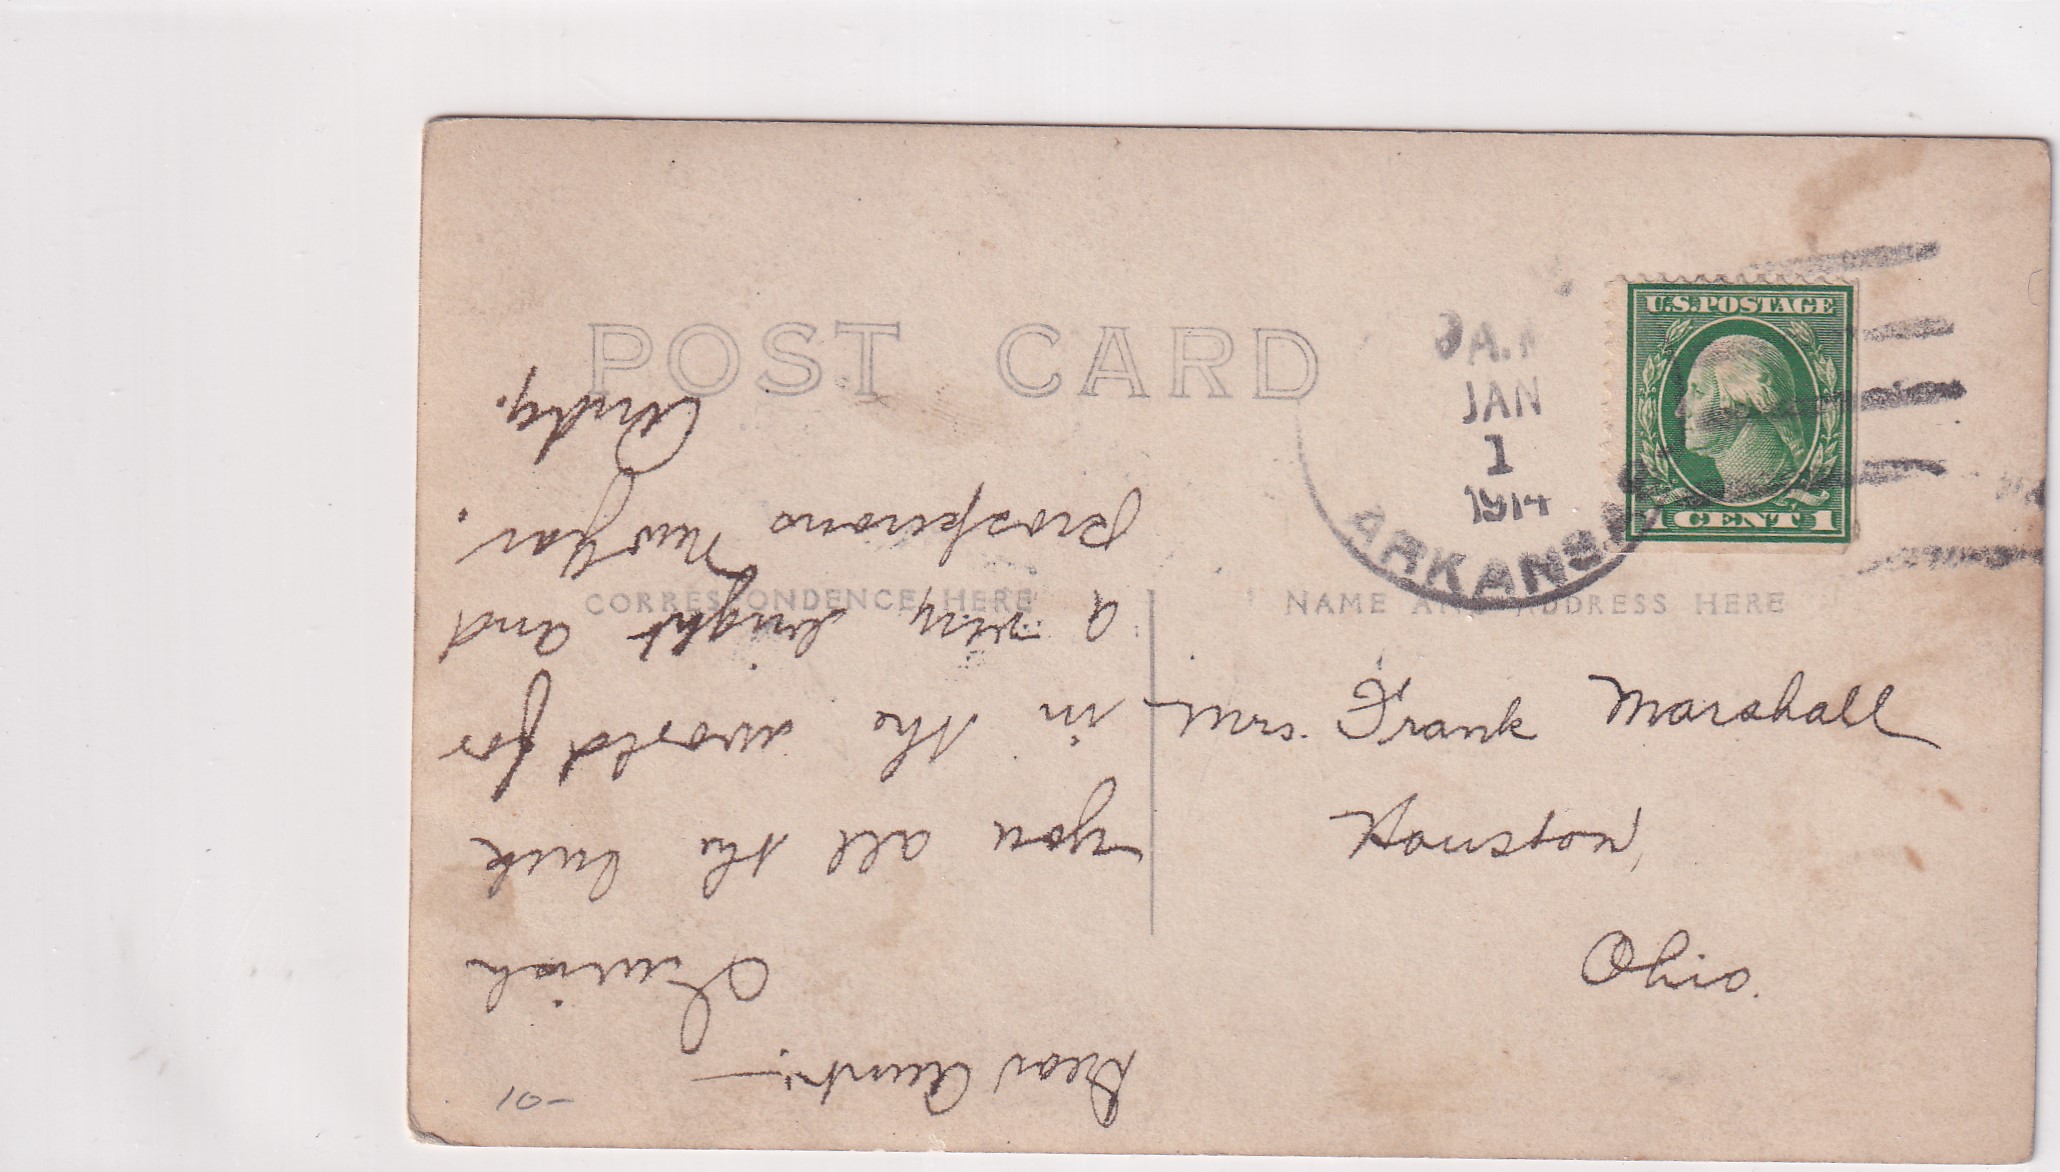 POST CARD
CORRESPONDENCE HERE
NAME AND ADDRESS HERE
U.S. POSTAGE
1 CENT 1
A.M
JAN
1
1914
ARKANSAS
Mrs. Frank Marshall
Houston,
Ohio.
Dear Aunt:—
I wish
you all the luck
in the world for
a very bright and
prosperous New Year.
Andy.
10-